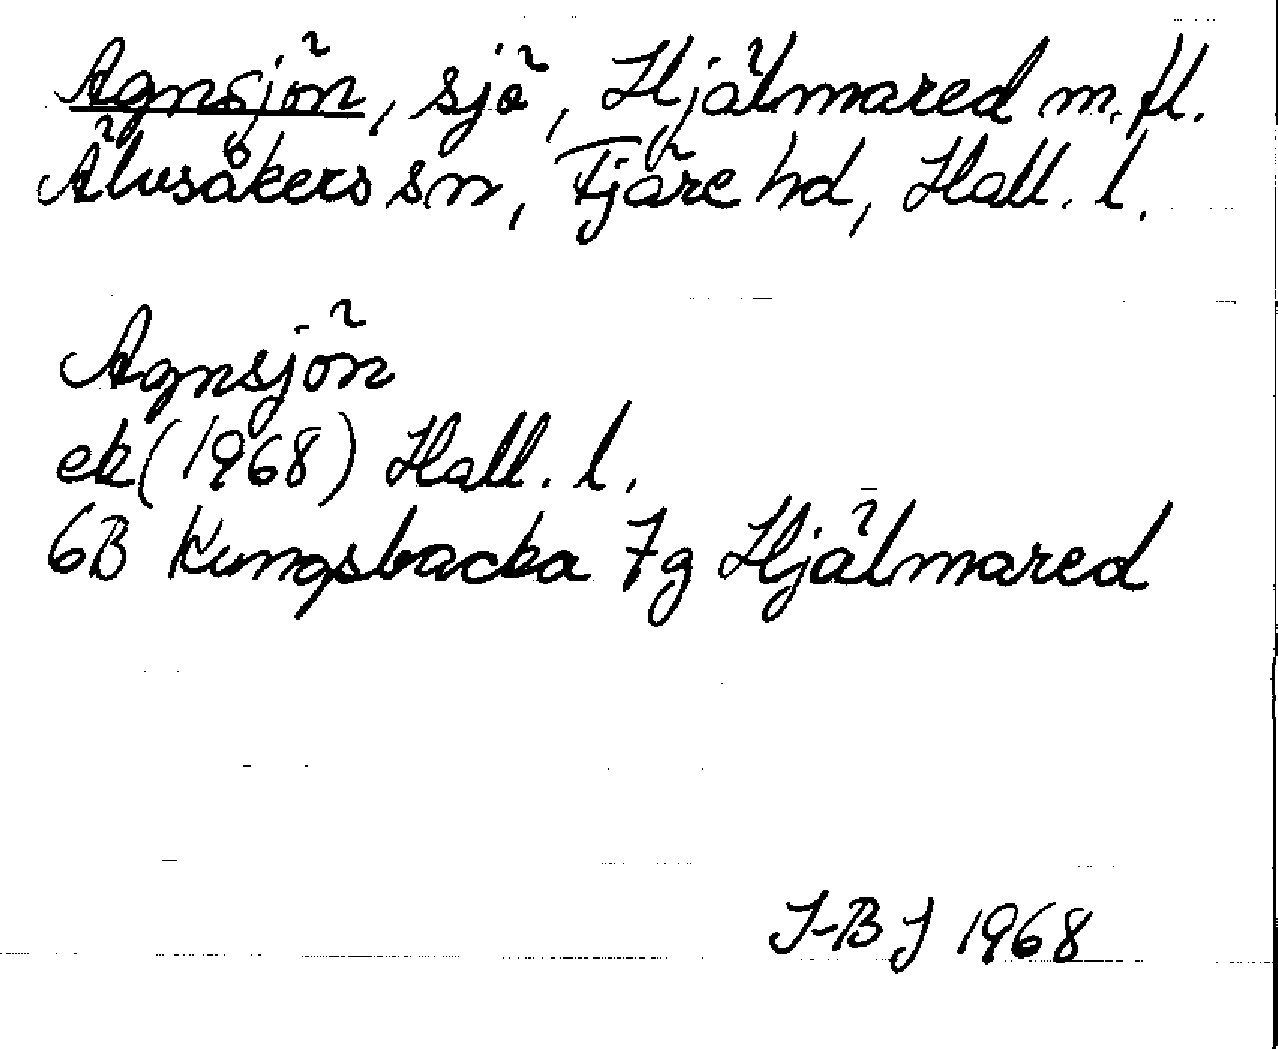 Agnsjön, sjö, Hjälmared m.fl.
Älvsåkers sn, Fjäre hd, Hall. l.
Agnsjön
ek (1968) Hall. l.
6B Kungsbacka 7g Hjälmared
I-BJ 1968